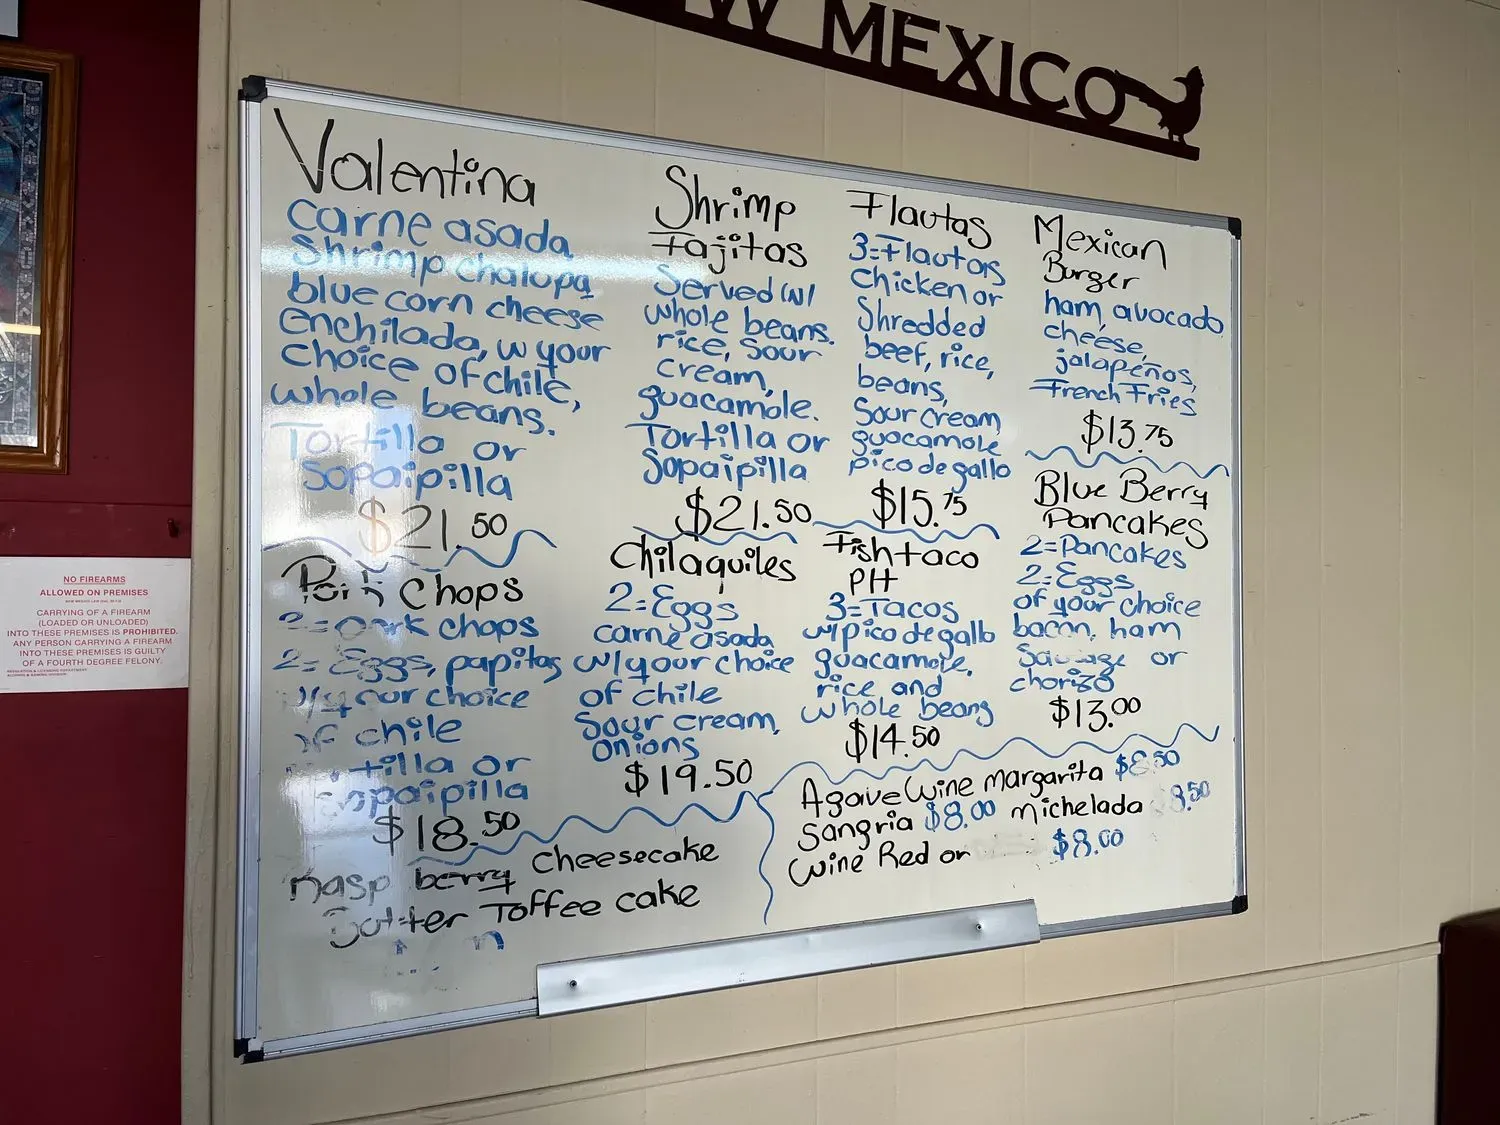 W MEXICO
Valentina
carne asada
Shrimp chalupa
blue corn cheese
enchilada, w your
choice of chile,
whole beans.
Tortilla or
sopaipilla
$21.50
Shrimp
Fajitas
Served w/
whole beans.
rice, sour
cream,
guacamole.
Tortilla or
Sopaipilla
$21.50
Flautas
3=Flautas
Chicken or
Shredded
beef, rice,
beans,
Sour cream
guacamole
pico de gallo
$15.75
Mexican
Burger
ham, avocado
cheese,
jalapeños,
French Fries
$13.75
Blue Berry
Pancakes
2=Pancakes
2=Eggs
of your choice
bacon, ham
Sausage or
chorizo
$13.00
Pork Chops
2=Pork chops
2=Eggs, papitas
w/your choice
of chile
tortilla or
sopaipilla
$18.50
Chilaquiles
2=Eggs
carne asada
w/your choice
of chile
Sour cream,
onions
$19.50
Fish taco
PH
3=Tacos
w/pico de gallo
guacamole,
rice and
whole beans
$14.50
Raspberry Cheesecake
Butter Toffee cake
Agave Wine Margarita $8.50
Sangria $8.00 Michelada 8.50
Wine Red or $8.00
NO FIREARMS
ALLOWED ON PREMISES
CARRYING OF A FIREARM
(LOADED OR UNLOADED)
INTO THESE PREMISES IS PROHIBITED.
ANY PERSON CARRYING A FIREARM
INTO THESE PREMISES IS GUILTY
OF A FOURTH DEGREE FELONY.